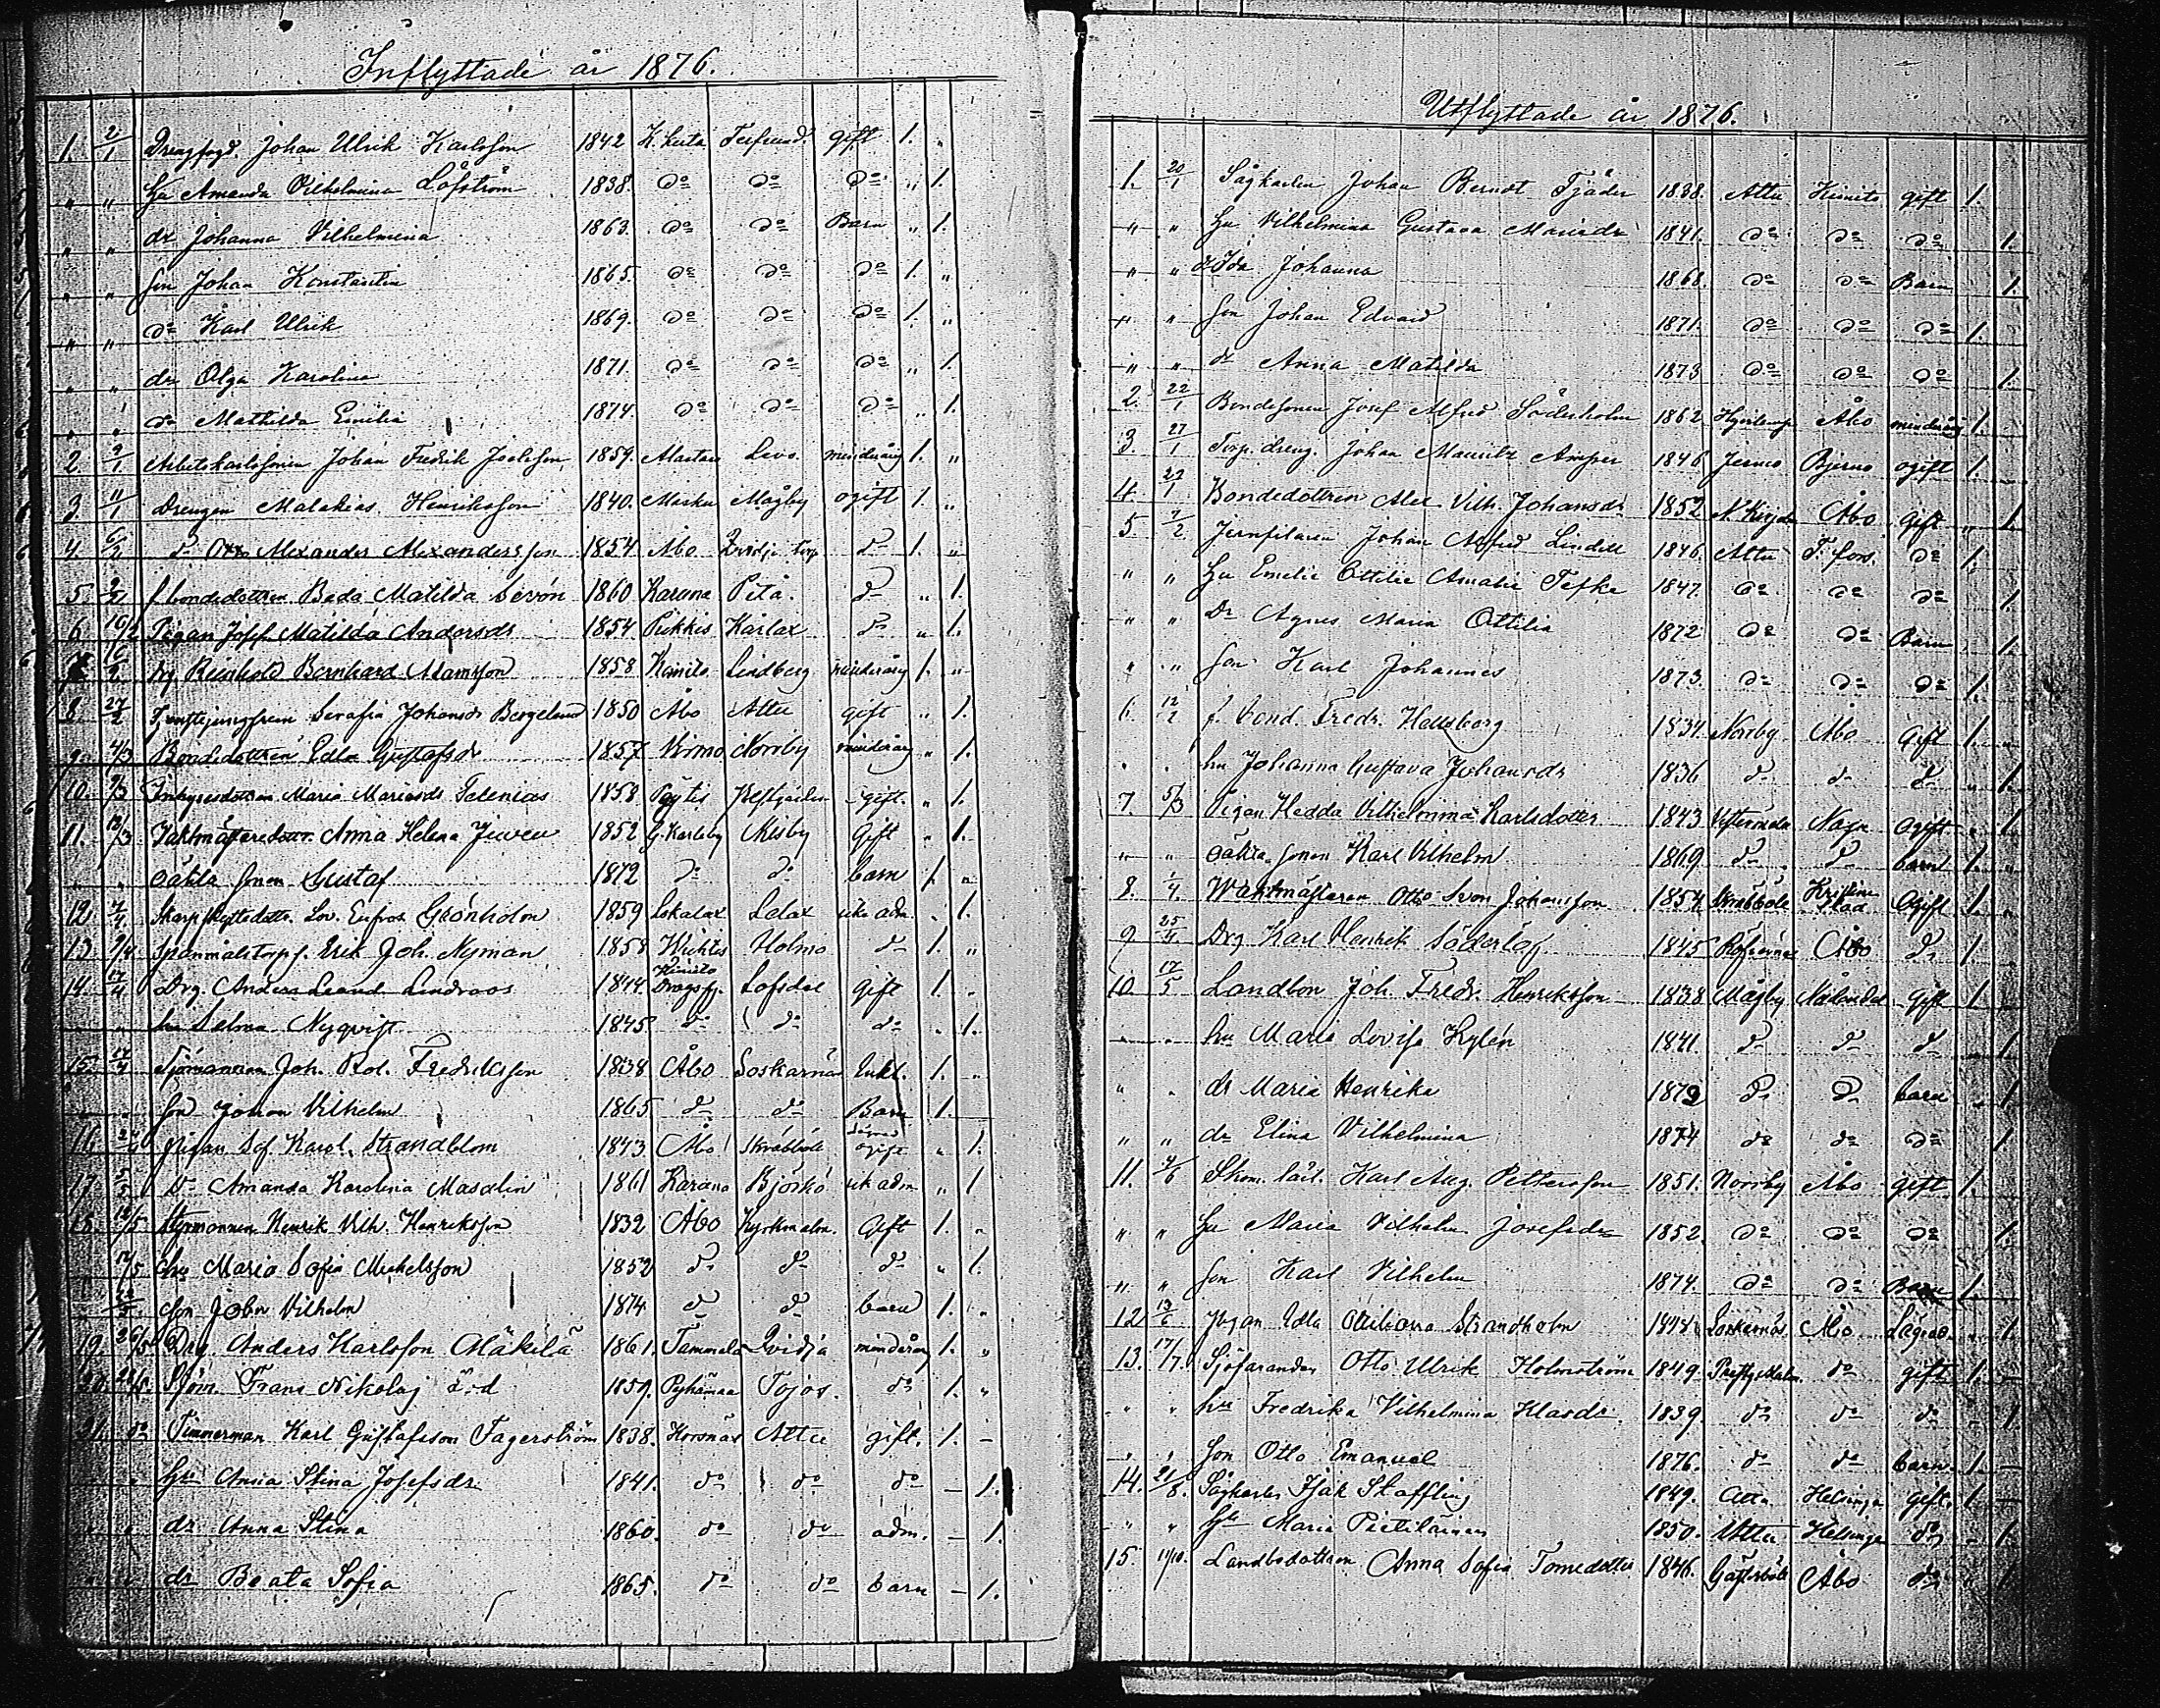 Inflyttade år 1876.
1. 2/1 Drengfogd. Johan Ulrik Karlsson 1842 K.lusta gift 1. "
" " Hu Amanda Vilhelmina Löfström 1838. do do do " 1.
" " dr Johanna Vilhelmina 1863. do do Barn " 1.
" " son Johan Konstantin 1865. do do do 1. "
" " do Karl Ulrik 1869. do do do 1. "
" " dr Olga Karolina 1871. do do do " 1.
" " do Mathilda Emilia 1874. do do do " 1.
2. 9/1 Arbetskarlssonen Johan Fredrik 1859. Levo minderårig 1. "
3 11/1 Drengen Malakias Henriksson 1840. Masku Mågby ogift 1. "
4. 6/2 do Otto Alexander Alexandersson 1854. Åbo Qvidja torp do 1. "
5. f. bondedottren Beda Matilda Sevón 1860 Karuna do " 1.
6. 16/2 Pigan Josef. Matilda Andersdr 1854. Piikkis Karlax do " 1.
7. 16/2 drg Reinhold Bernhard Adamsson 1858 Kimito Lindberg minderårig 1. "
8. 27/2 Tjenstejungfrun Serafia Johansdr Bergelund 1850 Åbo Attu gift " 1.
9. 4/3 Bondedottren Edla Gustafsdr 1857 Virmo Norrby minderårig " 1.
10. 9/3 Inhysesdottren Maria Mariasdr Selenius 1858 Pöytis ogift. " 1.
11. 12/3 Anna Helena 1852 G. Karleby Misby Gift " 1.
" " oäkta sonen Gustaf 1872 do do barn 1. "
12. 7/4 Skarpskyttedottr. Lov. Eufros. Grönholm 1859 Lokalax Lelax icke adm. " 1.
13. 9/4 Spånmålstorp s. Erik Joh. Nyman 1858 Wichtis Holmo do 1. "
14. 17/4 Drg. Anders Leand. Lindroos 1844. Kimito Dragsfj. Lofsdal gift 1. "
" " hu Selma Nyqvist 1845 do do do " 1.
15. 17/4 Sjömannen Joh. Rob. Fredriksson 1838 Åbo Sorkarnäs Enkl. 1. "
" " son Johan Vilhelm 1865 do do Barn 1.
16. Pigan Sof. Karol. Strandblom 1843 Åbo Skräbböle ogift " 1.
17. 5/5 do Amanda Karolina Masalin 1861 Karuna Björkö ick adm. " 1
18. Styrmannen Henrik Vilh. Henriksson 1832 Åbo Kyrkmalm. Gift 1. "
" 14/5 hu Maria Sofia Mickelsson 1852 do do do " 1.
" son John Vilhelm 1874 do do barn 1. "
19. 26/5 Drg. Anders Karlsson Mäkilä 1861. Tammela Qvidja minderårig 1. "
20. Sjöm. Frans Nikolaj 1859. Pyhämaa Tojos. do 1. "
21. do Timmerman Karl Gustafsson Fagerström 1838. Korsnäs Attu gift. 1. –
" " Hu Anna Stina Josefsdr. 1841. do do do – 1.
" " dr Anna Stina 1860. do do adm. – 1.
" " dr Beata Sofia 1865. do do barn – 1.
Utflyttade år 1876.
1. 20/1 Sågkarlen Johan Berndt Tjäder 1838. Attu Kimito gift 1.
" " Hu Vilhelmina Gustava Mariadr 1841. do do do 1.
" " dr Ida Johanna 1868. do do Barn 1.
" " son Johan Edvard 1871. do do do 1.
" " dr Anna Matilda 1873 do do do 1.
2. 22/1 Bondesonen Josef Alfred Söderholm 1862 Åbo minderårig 1.
3 27/1 Torp. dreng. Johan Mauritz Amper 1846 Jermo Bjerno ogift 1.
4 27/1 Bondedottren Alex. Vilh. Johansdr 1852 Åbo gift " 1.
5 7/2. Jernfilaren Johan Alfred Lindell 1846 Attu T. fors. do 1.
" " Hu Emelie Ottilie Amalie Tefke 1847. do do do 1.
" " Dr Agnes Maria Ottilia 1872 do do Barn 1.
" " Son Karl Johannes 1873. do do do 1.
6. 12/2 f. bond. Fredr. Hallsborg 1831. Norrby Åbo Gift 1. "
" " hu Johanna Gustava Johansdr 1836 do do do " 1.
7. 5/3 Pigan Hedda Vilhelmina Karlsdotter 1843 Nagu Ogift " 1.
" " oäkta sonen Karl Vilhelm 1869 do do barn 1. "
8. 1/4. Waktmästaren Otto Sven Johansson 1854 Skräbböle Kristinestad Ogift 1. "
9 25/4 Drg Karl Henrik Söderlöf 1845 Åbo do 1
10 17/5 Landbon Joh. Fredr. Henriksson 1838 Mågby Nådendal gift 1
" " hu Maria Lovisa Kylén 1841. do do do " 1.
" " dr Maria Henrika 1872 do do barn " 1
" " dr Elina Vilhelmina 1874 do do do 1.
11. 4/6 Skom. lärl. Karl Aug. Pettersson 1851. Norrby Åbo gift 1.
" " Hu Maria Vilhelm. Josefsdr 1852. do do do 1.
" " Son Karl Vilhelm 1874. do do Barn 1.
12 13/6 Pigan Edla Strandholm 1848 Sorkarnäs Åbo " 1.
13. 17/7. Sjöfaranden Otto Ulrik Holmström 1849. do gift 1. –
" " hu Fredrika Vilhelmina Klasdr. 1839. do do do – 1.
" " Son Otto Emanuel 1876. do do barn. 1. –
14. 21/8. Sågkarlen Isak Staffling 1849. Attu Helsinge gift. 1. –
" " Hu Maria Pietiläinen 1850. Attu Helsinge do – 1.
15 11/10. Landbodottren Anna Sofia Tomedotter 1846. Gästerböle Åbo do " 1.